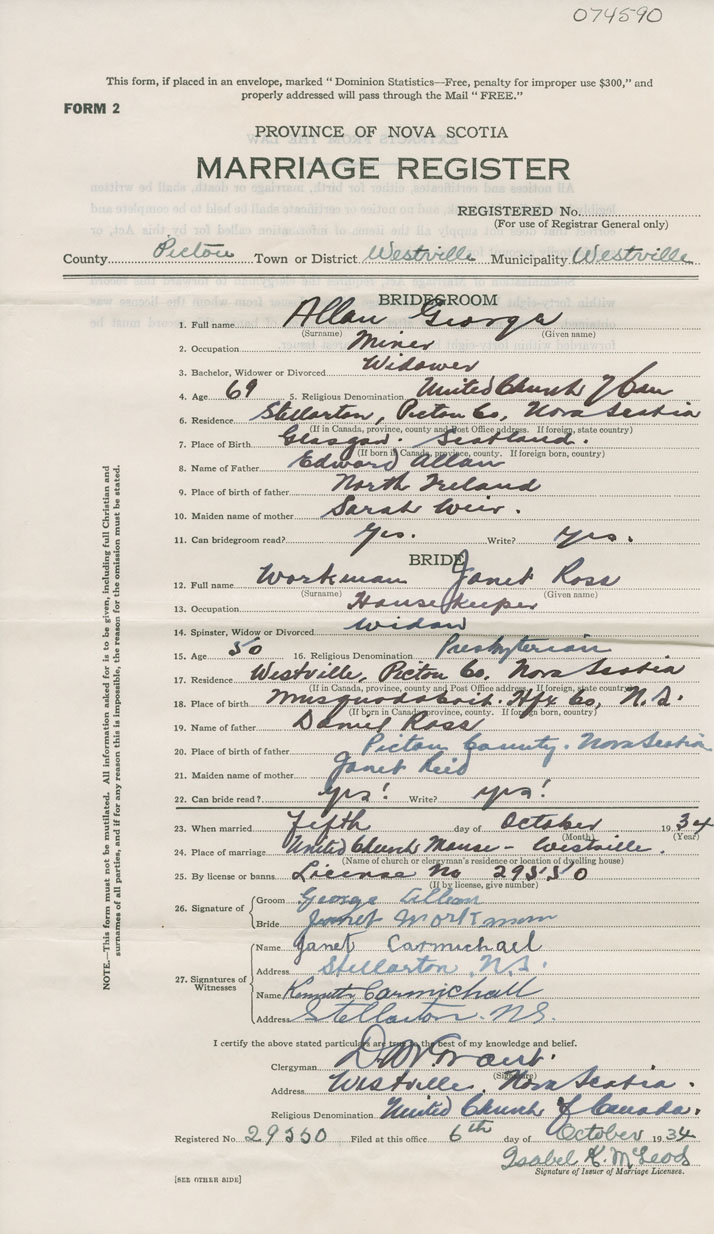 074590
This form, if placed in an envelope, marked "Dominion Statistics—Free, penalty for improper use $300," and
properly addressed will pass through the Mail "FREE."
FORM 2
PROVINCE OF NOVA SCOTIA
MARRIAGE REGISTER
REGISTERED No.
(For use of Registrar General only)
County Pictou Town or District Westville Municipality Westville
BRIDEGROOM
1. Full name Allan George
(Surname) (Given name)
2. Occupation Miner
3. Bachelor, Widower or Divorced Widower
4. Age 69 5. Religious Denomination United Church of Can
6. Residence Stellarton, Pictou Co, Nova Scotia
(If in Canada, province, county and Post Office address. If foreign, state country)
7. Place of Birth Glasgow. Scotland.
(If born in Canada, province, county. If foreign born, country)
8. Name of Father Edward Allan
9. Place of birth of father North Ireland
10. Maiden name of mother Sarah Weir.
11. Can bridegroom read? Yes. Write? yes.
BRIDE
12. Full name Workman Janet Ross
(Surname) (Given name)
13. Occupation Housekeeper
14. Spinster, Widow or Divorced Widow
15. Age 50 16. Religious Denomination Presbyterian
17. Residence Westville, Pictou Co. Nova Scotia
(If in Canada, province, county and Post Office address. If foreign, state country)
18. Place of birth Musquodoboit. Hfx Co, N.S.
(If born in Canada, province, county. If foreign born, country)
19. Name of father Daniel Ross
20. Place of birth of father Pictou County. Nova Scotia
21. Maiden name of mother Janet Reid
22. Can bride read? yes! Write? yes!
23. When married fifth day of October 1934
(Month) (Year)
24. Place of marriage United Church Manse - Westville.
(Name of church or clergyman's residence or location of dwelling house)
25. By license or banns License No 29550
(If by license, give number)
26. Signature of
Groom George Allan
Bride Janet Workman
27. Signatures of Witnesses
Name Janet Carmichael
Address Stellarton N.S.
Name Kenneth Carmichael
Address Stellarton. N.S.
I certify the above stated particulars are true to the best of my knowledge and belief.
Clergyman Grant.
(Signature)
Address Westville, Nova Scotia.
Religious Denomination United Church of Canada.
Registered No. 29550 Filed at this office 6th day of October 1934
Isabel K. McLeod
Signature of Issuer of Marriage Licenses.
[SEE OTHER SIDE]
NOTE.—This form must not be mutilated. All information asked for is to be given, including full Christian and
surnames of all parties, and if for any reason this is impossible, the reason for the omission must be stated.